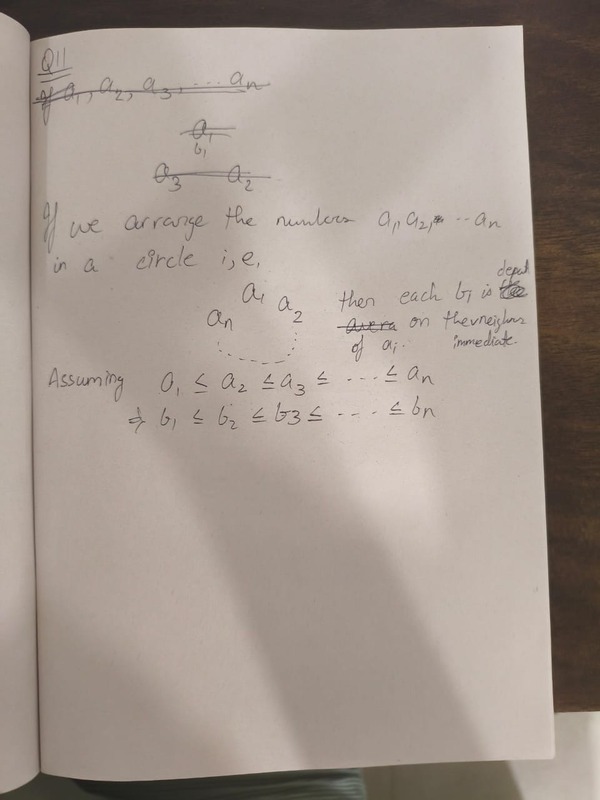 Q11
If a1, a2, a3, ... an
a1
b1
a3 a2
If we arrange the numbers a1, a2, ... an
in a circle i,e,
a1
an a2
then each bi is depend
on the neighbors
of ai. immediate.
Assuming a1 ≤ a2 ≤ a3 ≤ .... ≤ an
⇒ b1 ≤ b2 ≤ b3 ≤ .... ≤ bn